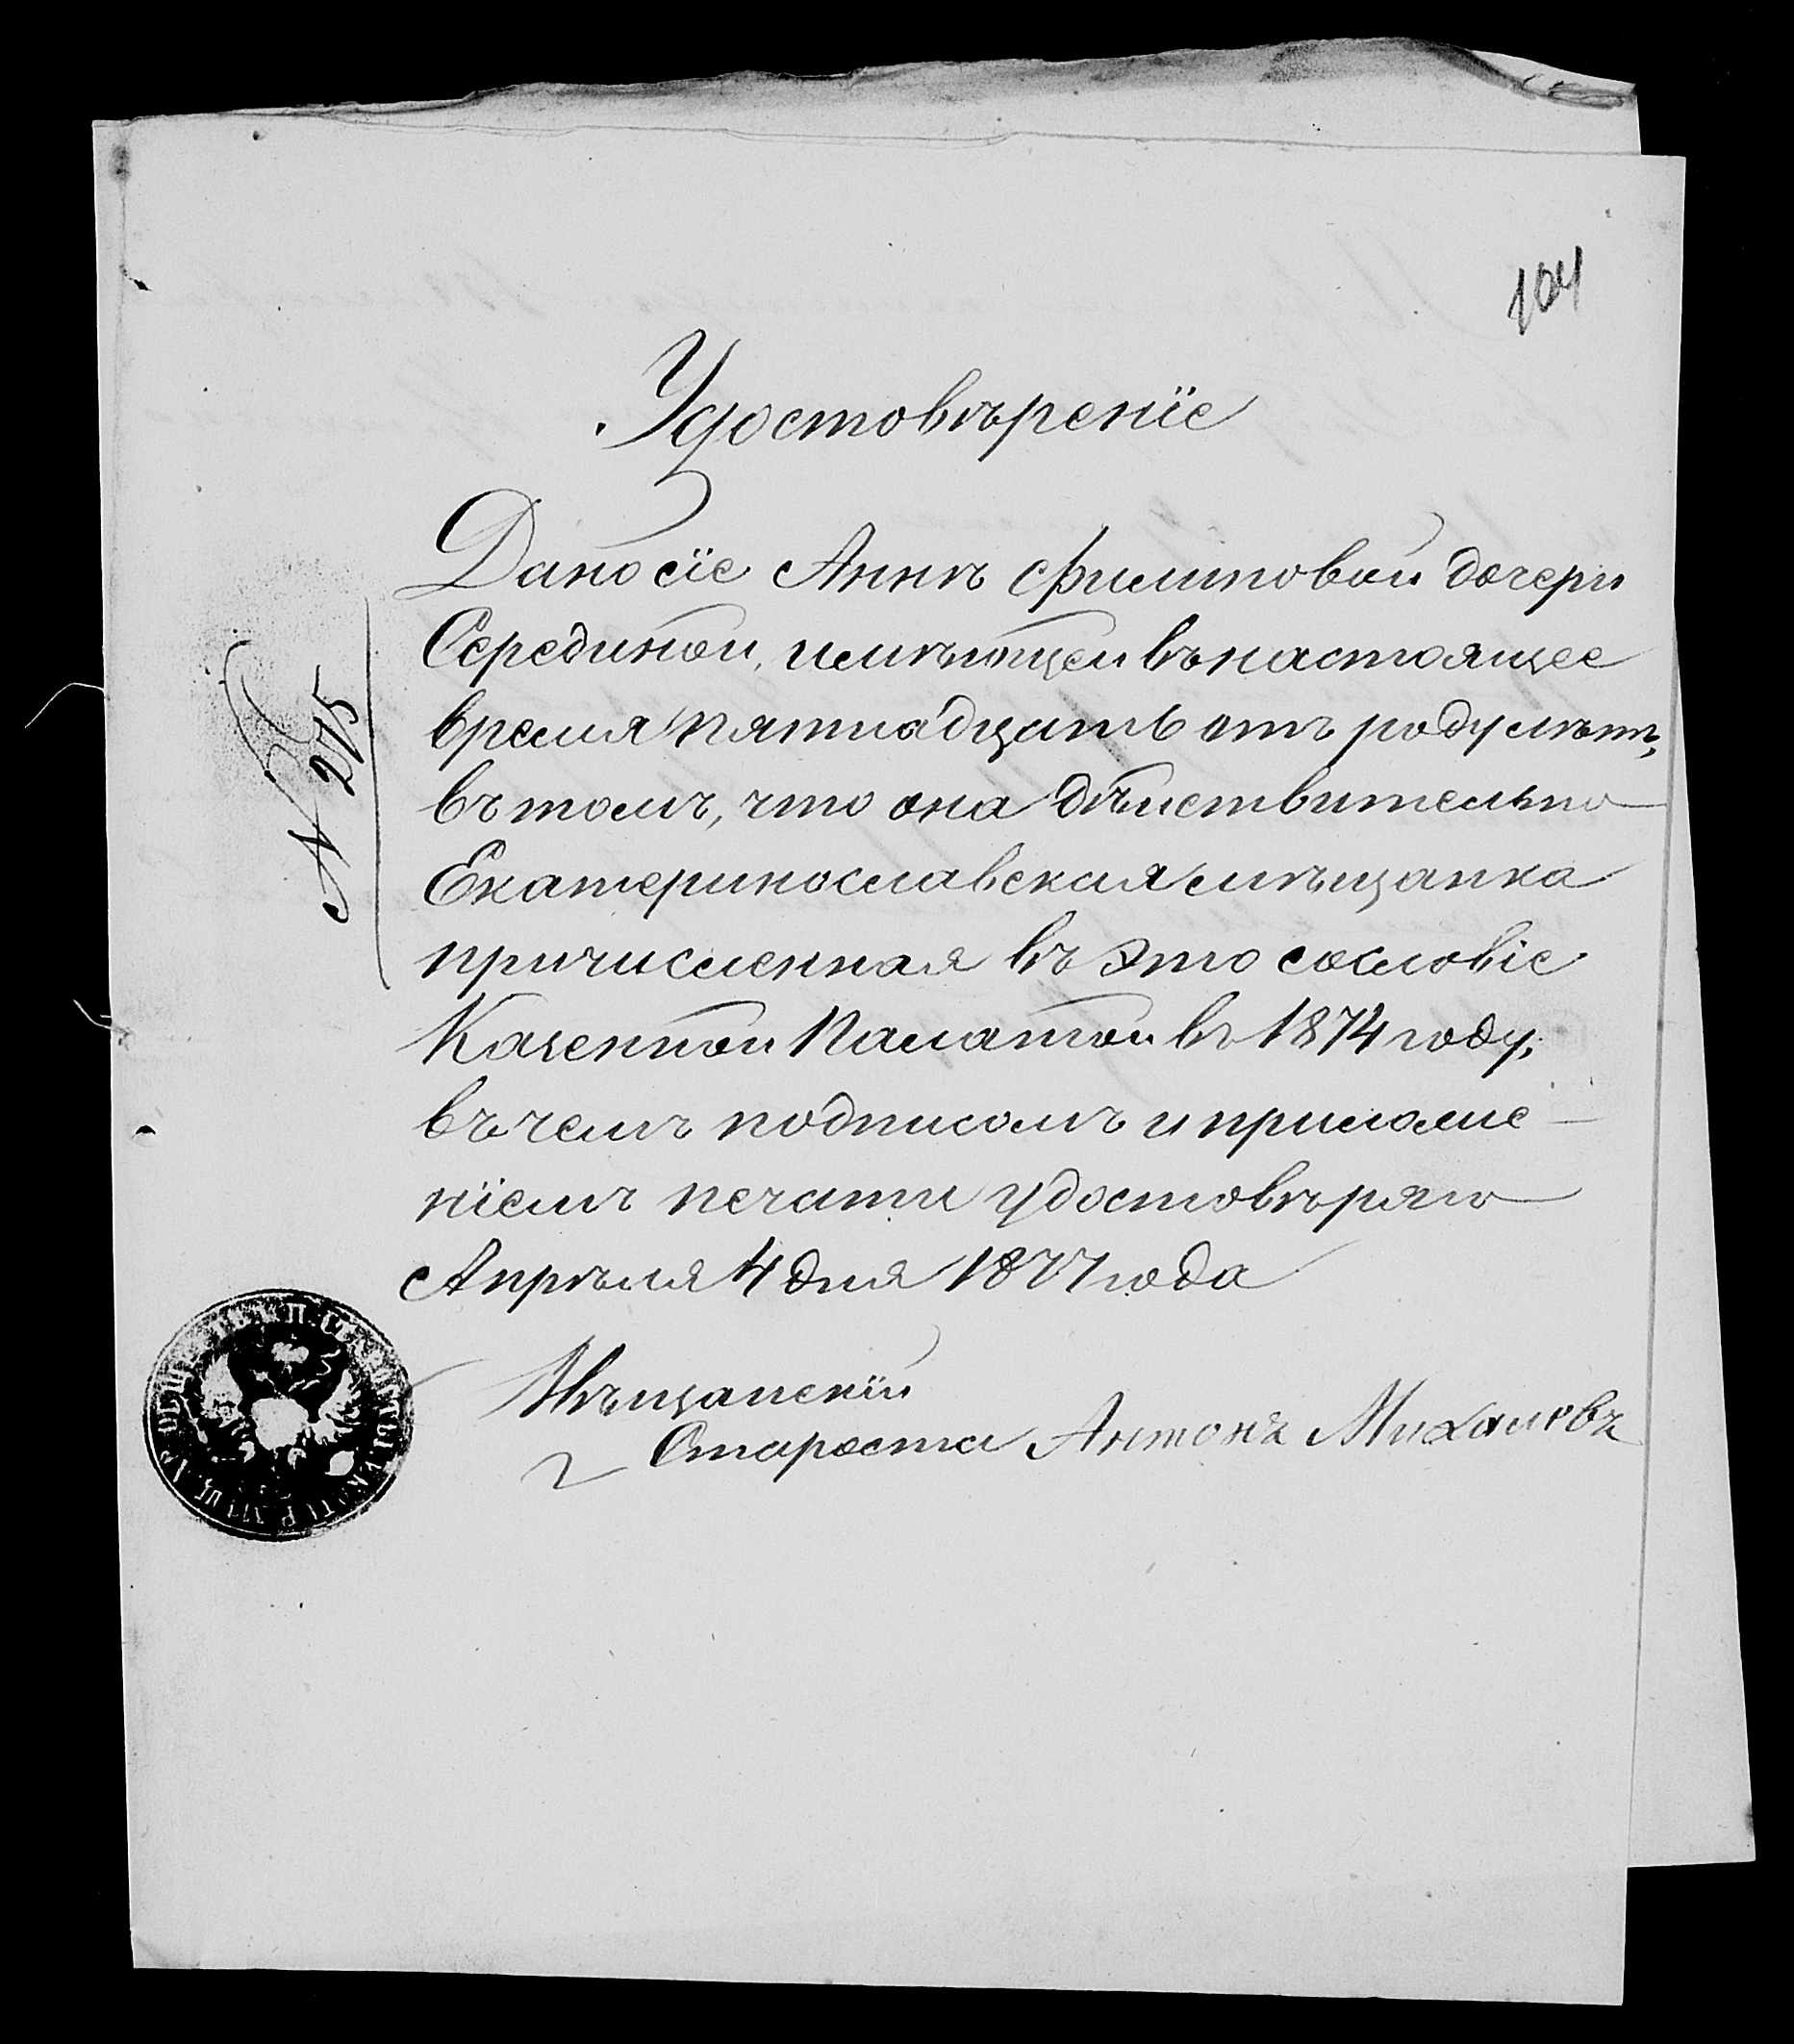 104
Удостовѣреніе
Дано сіе Аннѣ Филиповой дочери
Серединой, имѣющей въ настоящее
время пятнадцать отъ роду лѣтъ,
въ томъ, что она дѣйствительно
Екатеринославская мѣщанка
причисленная въ это сословіе
Казенной Палатой въ 1874 году,
въ чемъ подписомъ и приложе-
ніемъ печати удостовѣряю
Апрѣля 4 дня 1877 года
№ 275
Мѣщанскій
Староста Антонъ Михалевъ